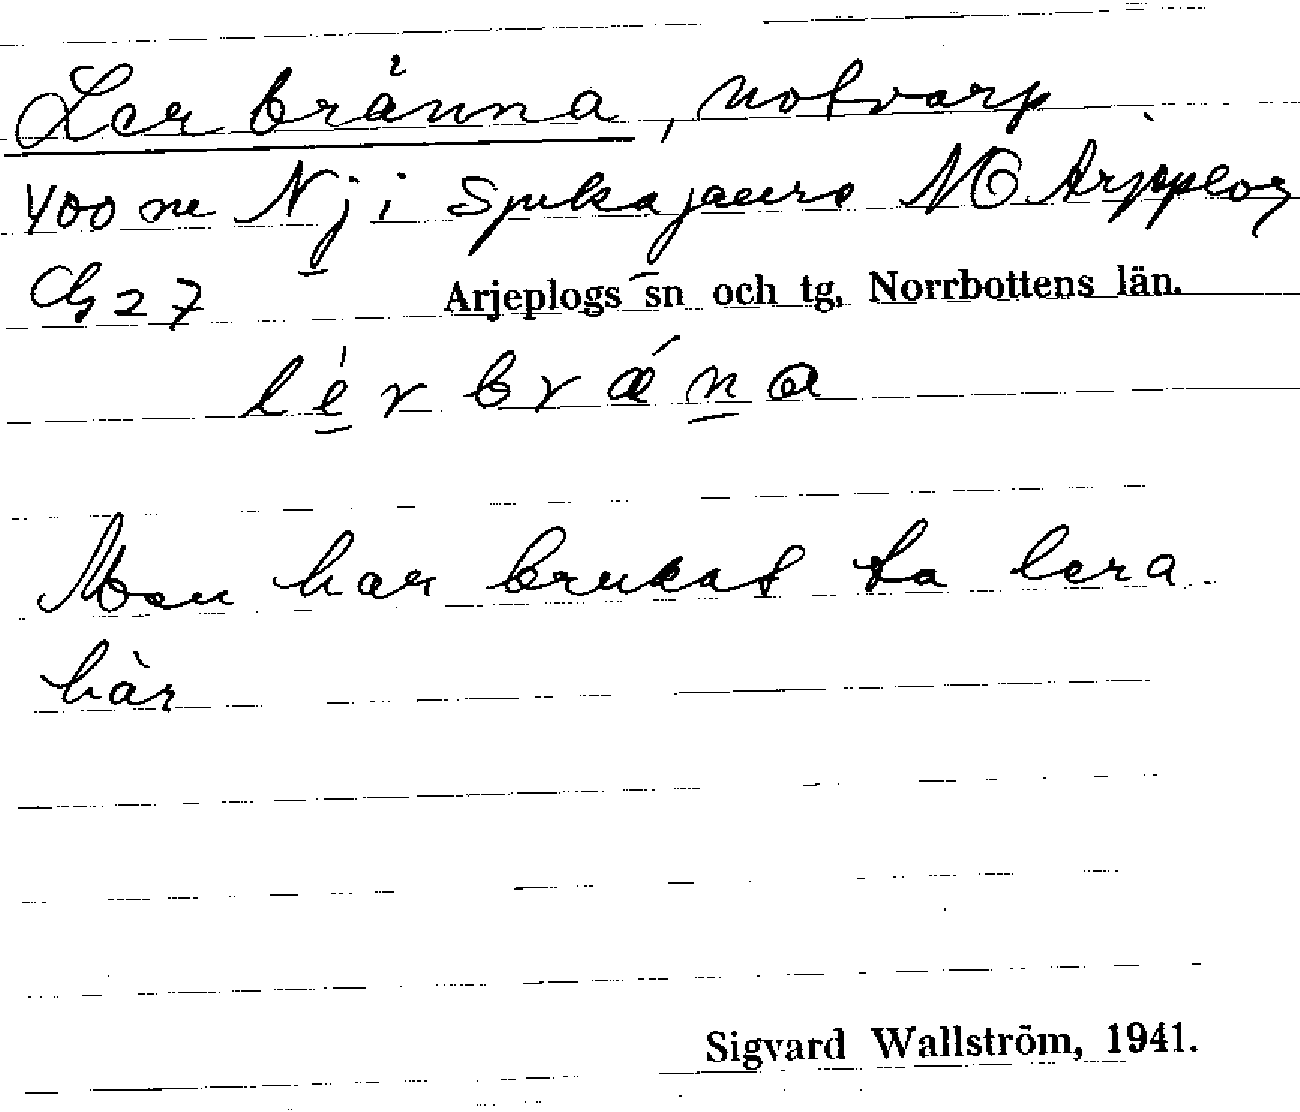 Lerbränna, notvarp
400 m N j i Spukajaure NO Arjeplog
G 27 Arjeplogs sn och tg, Norrbottens län.
lérbrǽna
Man har brukat ta lera
här
Sigvard Wallström, 1941.